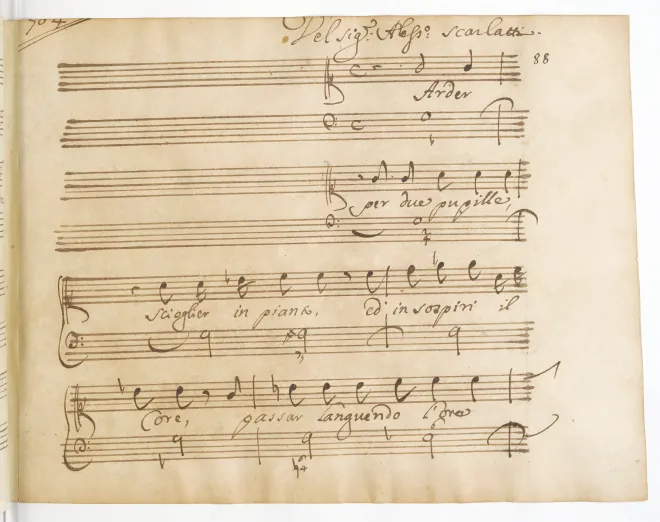 704
Del sig.r Aless.o Scarlatti.
88
Arder
per due pupille,
scioglier in pianto, ed in sospiri il
Core, passar languendo l'ore